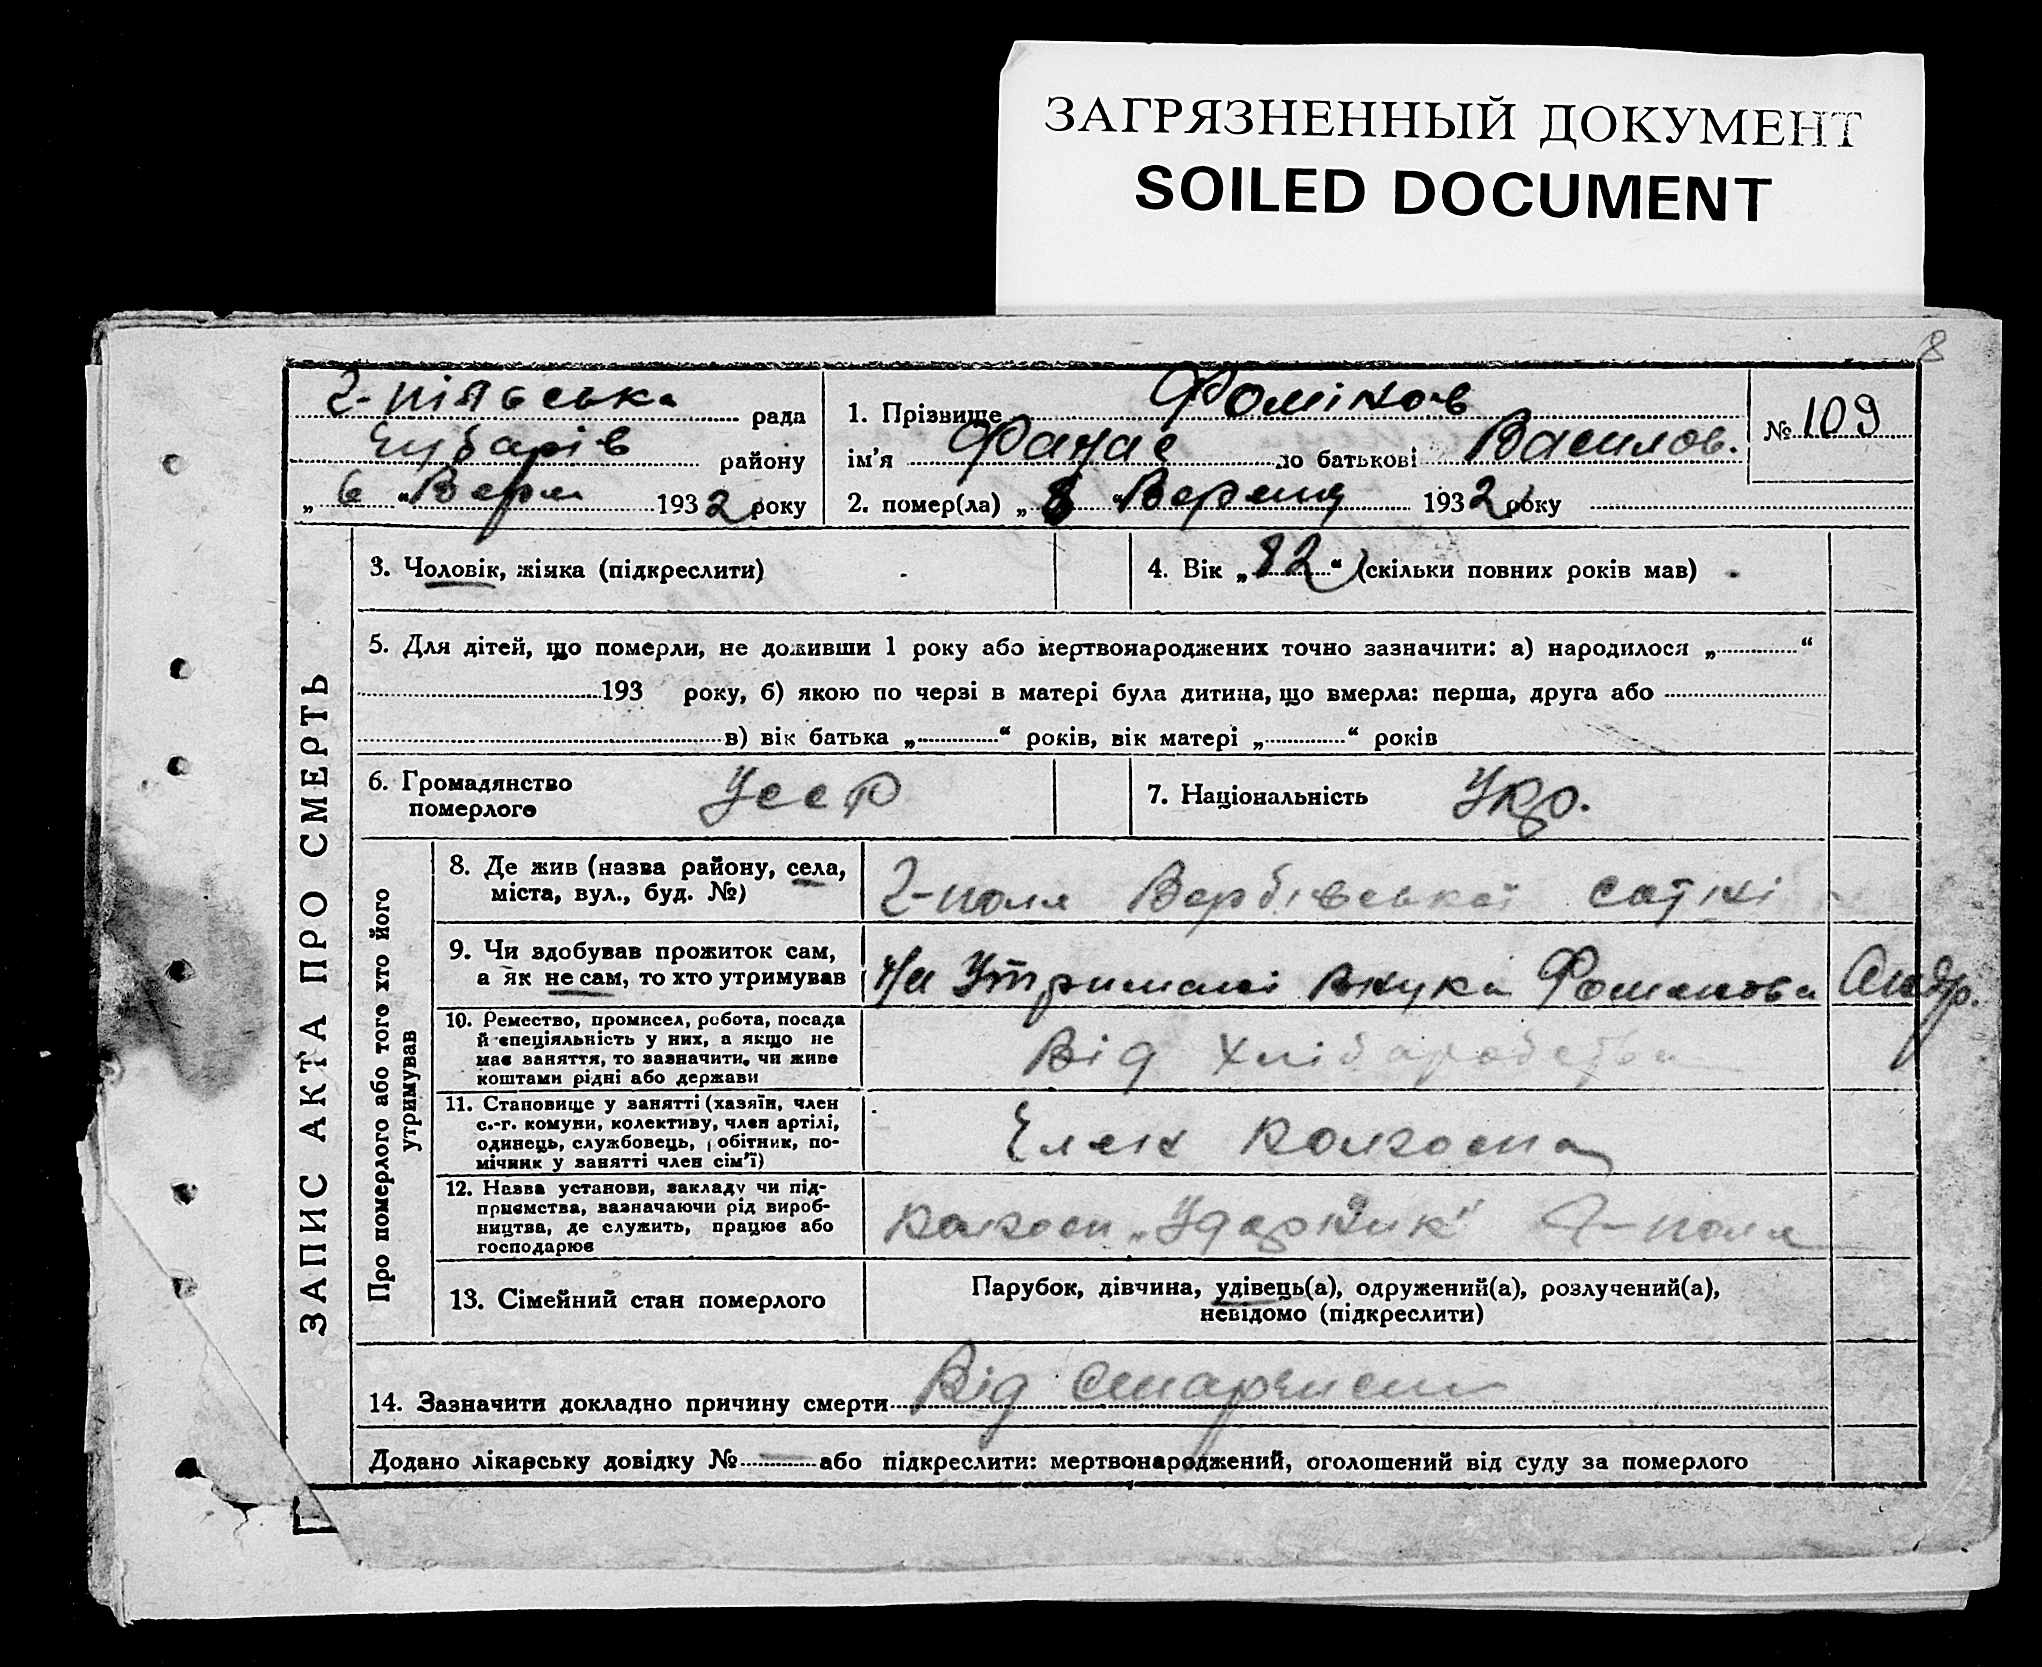 ЗАГРЯЗНЕННЫЙ ДОКУМЕНТ
SOILED DOCUMENT
8
2-пільська рада
Чубарів району
„ 6 “ Верес 1932 року
1. Прізвище Фомінов
ім'я Фанас по батькові Василов.
2. помер(ла) „ “ Вересня 1932 року
№ 109
3. Чоловік, жінка (підкреслити)
4. Вік „ 82 “ (скільки повних років мав)
5. Для дітей, що померли, не доживши 1 року або мертвонароджених точно зазначити: а) народилося „ “
193 року, б) якою по черзі в матері була дитина, що вмерла: перша, друга або
в) вік батька „ “ років, вік матері „ “ років
6. Громадянство
померлого
Усср
7. Національність Укр.
ЗАПИС АКТА ПРО СМЕРТЬ
Про померлого або того хто його
утримував
8. Де жив (назва району, села,
міста, вул., буд. №)
2-поля Вербівської
9. Чи здобував прожиток сам,
а як не сам, то хто утримував
Утримані внука Фоменова Андр.
10. Ремество, промисел, робота, посада
й спеціяльність у них, а якщо не
має заняття, то зазначити, чи живе
коштами рідні або держави
Від хліборобства
11. Становище у занятті (хазяїн, член
с.-г. комуни, колективу, член артілі,
одинець, службовець, робітник, по-
мічник у занятті член сім'ї)
Член колгоспа
12. Назва установи, закладу чи під-
приємства, зазначаючи рід вироб-
ництва, де служить, працює або
господарює
колгосп „Ударник“ 2-поля
13. Сімейний стан померлого
Парубок, дівчина, удівець(а), одружений(а), розлучений(а),
невідомо (підкреслити)
14. Зазначити докладно причину смерти Від старости
Додано лікарську довідку № — або підкреслити: мертвонароджений, оголошений від суду за померлого